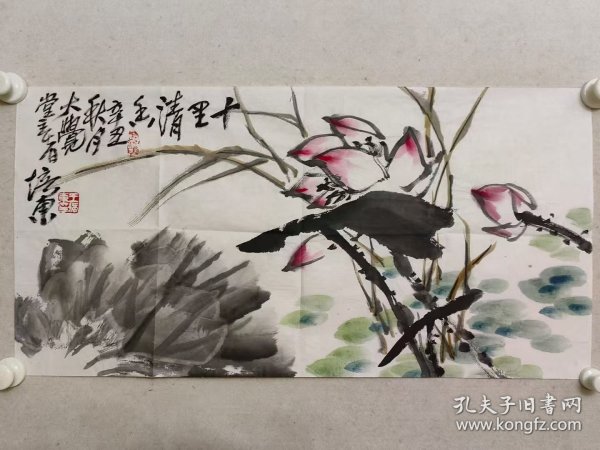 十里清香
辛丑
秋月
大觉
堂主人
培東
孔夫子旧书网
www.kongfz.com